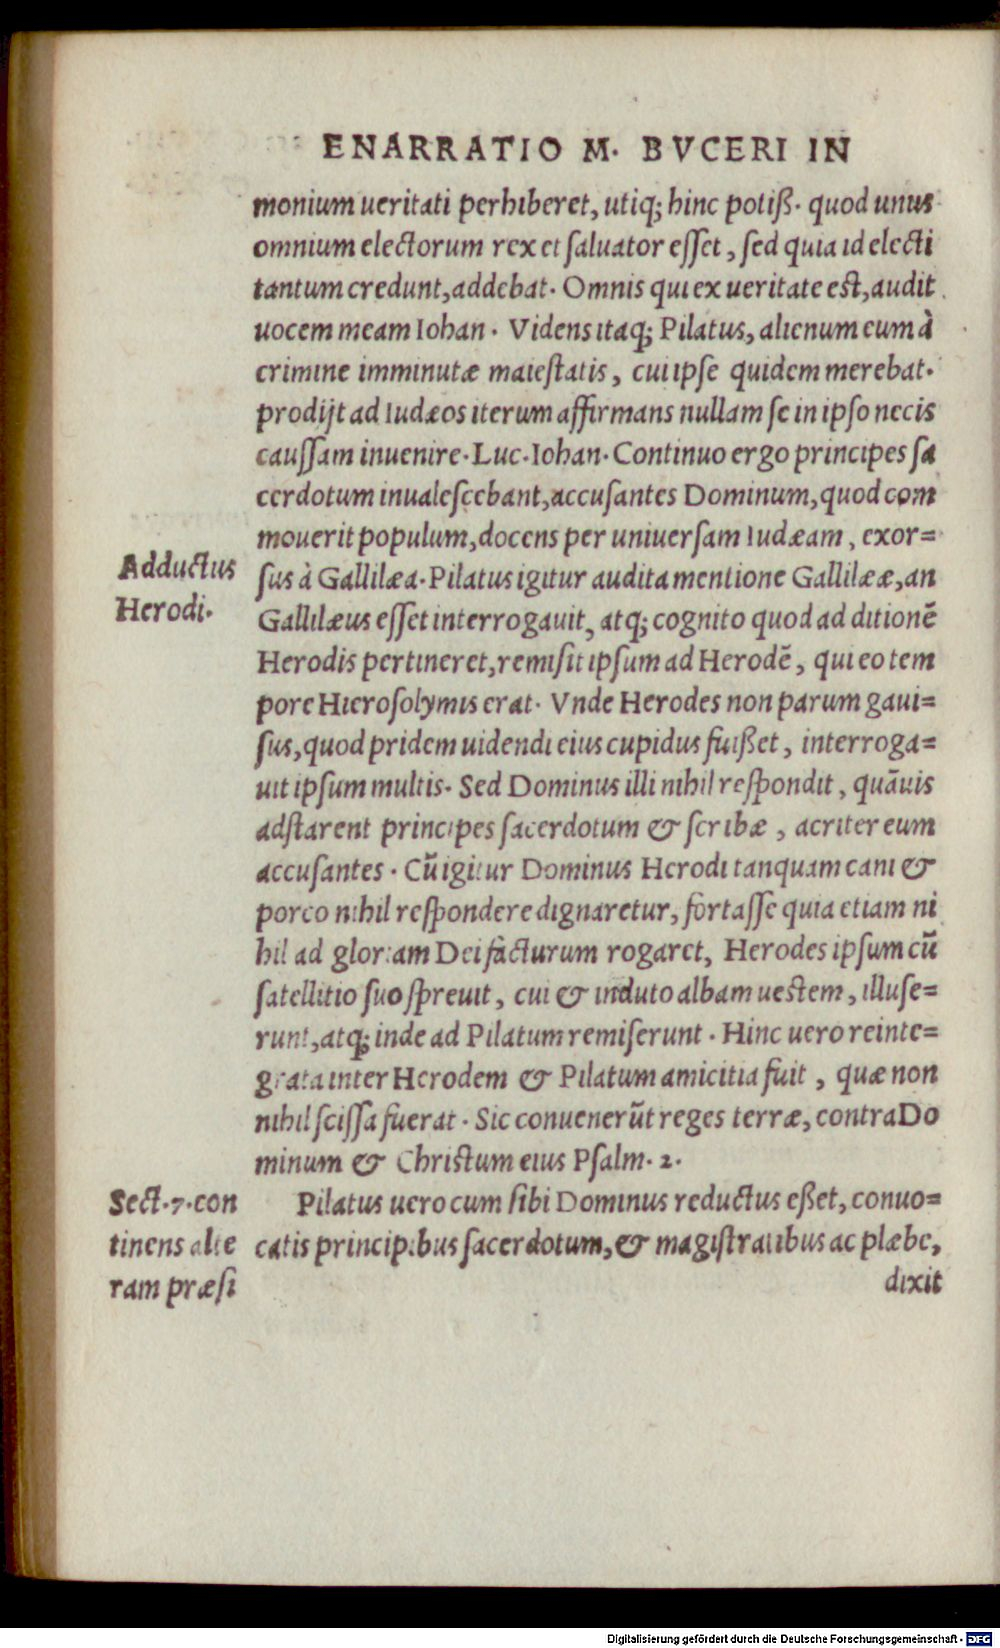 ENARRATIO M. BVCERI IN
monium ueritati perhiberet, utiq; hinc potiß. quod unus
omnium electorum rex et ſaluator eſſet, ſed quia id electi
tantum credunt, addebat. Omnis qui ex ueritate eſt, audit
uocem meam Iohan. Videns itaq; Pilatus, alienum eum à
crimine imminutæ maieſtatis, cui ipſe quidem merebat.
prodijt ad Iudæos iterum affirmans nullam ſe in ipſo necis
cauſſam inuenire. Luc. Iohan. Continuo ergo principes ſa
cerdotum inualeſcebant, accuſantes Dominum, quod com
mouerit populum, docens per uniuerſam Iudæam, exor=
Adductus
Herodi.
ſus à Gallilæa. Pilatus igitur audita mentione Gallilææ, an
Gallilæus eſſet interrogauit, atq; cognito quod ad ditionē
Herodis pertineret, remiſit ipſum ad Herodē, qui eo tem
pore Hieroſolymis erat. Vnde Herodes non parum gaui=
ſus, quod pridem uidendi eius cupidus fuißet, interroga=
uit ipſum multis. Sed Dominus illi nihil reſpondit, quāuis
adſtarent principes ſacerdotum & ſcribæ, acriter eum
accuſantes. Cū igitur Dominus Herodi tanquam cani &
porco nihil reſpondere dignaretur, fortaſſe quia etiam ni
hil ad gloriam Dei facturum rogaret, Herodes ipſum cū
ſatellitio ſuo ſpreuit, cui & induto albam ueſtem, illuſe=
runt, atq; inde ad Pilatum remiſerunt. Hinc uero reinte=
grata inter Herodem & Pilatum amicitia fuit, quæ non
nihil ſciſſa fuerat. Sic conuenerūt reges terræ, contra Do
minum & Chriſtum eius Pſalm. 2.
Sect. 7. con
tinens alte
ram præſi
Pilatus uero cum ſibi Dominus reductus eßet, conuo=
catis principibus ſacerdotum, & magiſtratibus ac plæbe,
dixit
Digitalisierung gefördert durch die Deutsche Forschungsgemeinschaft - DFG